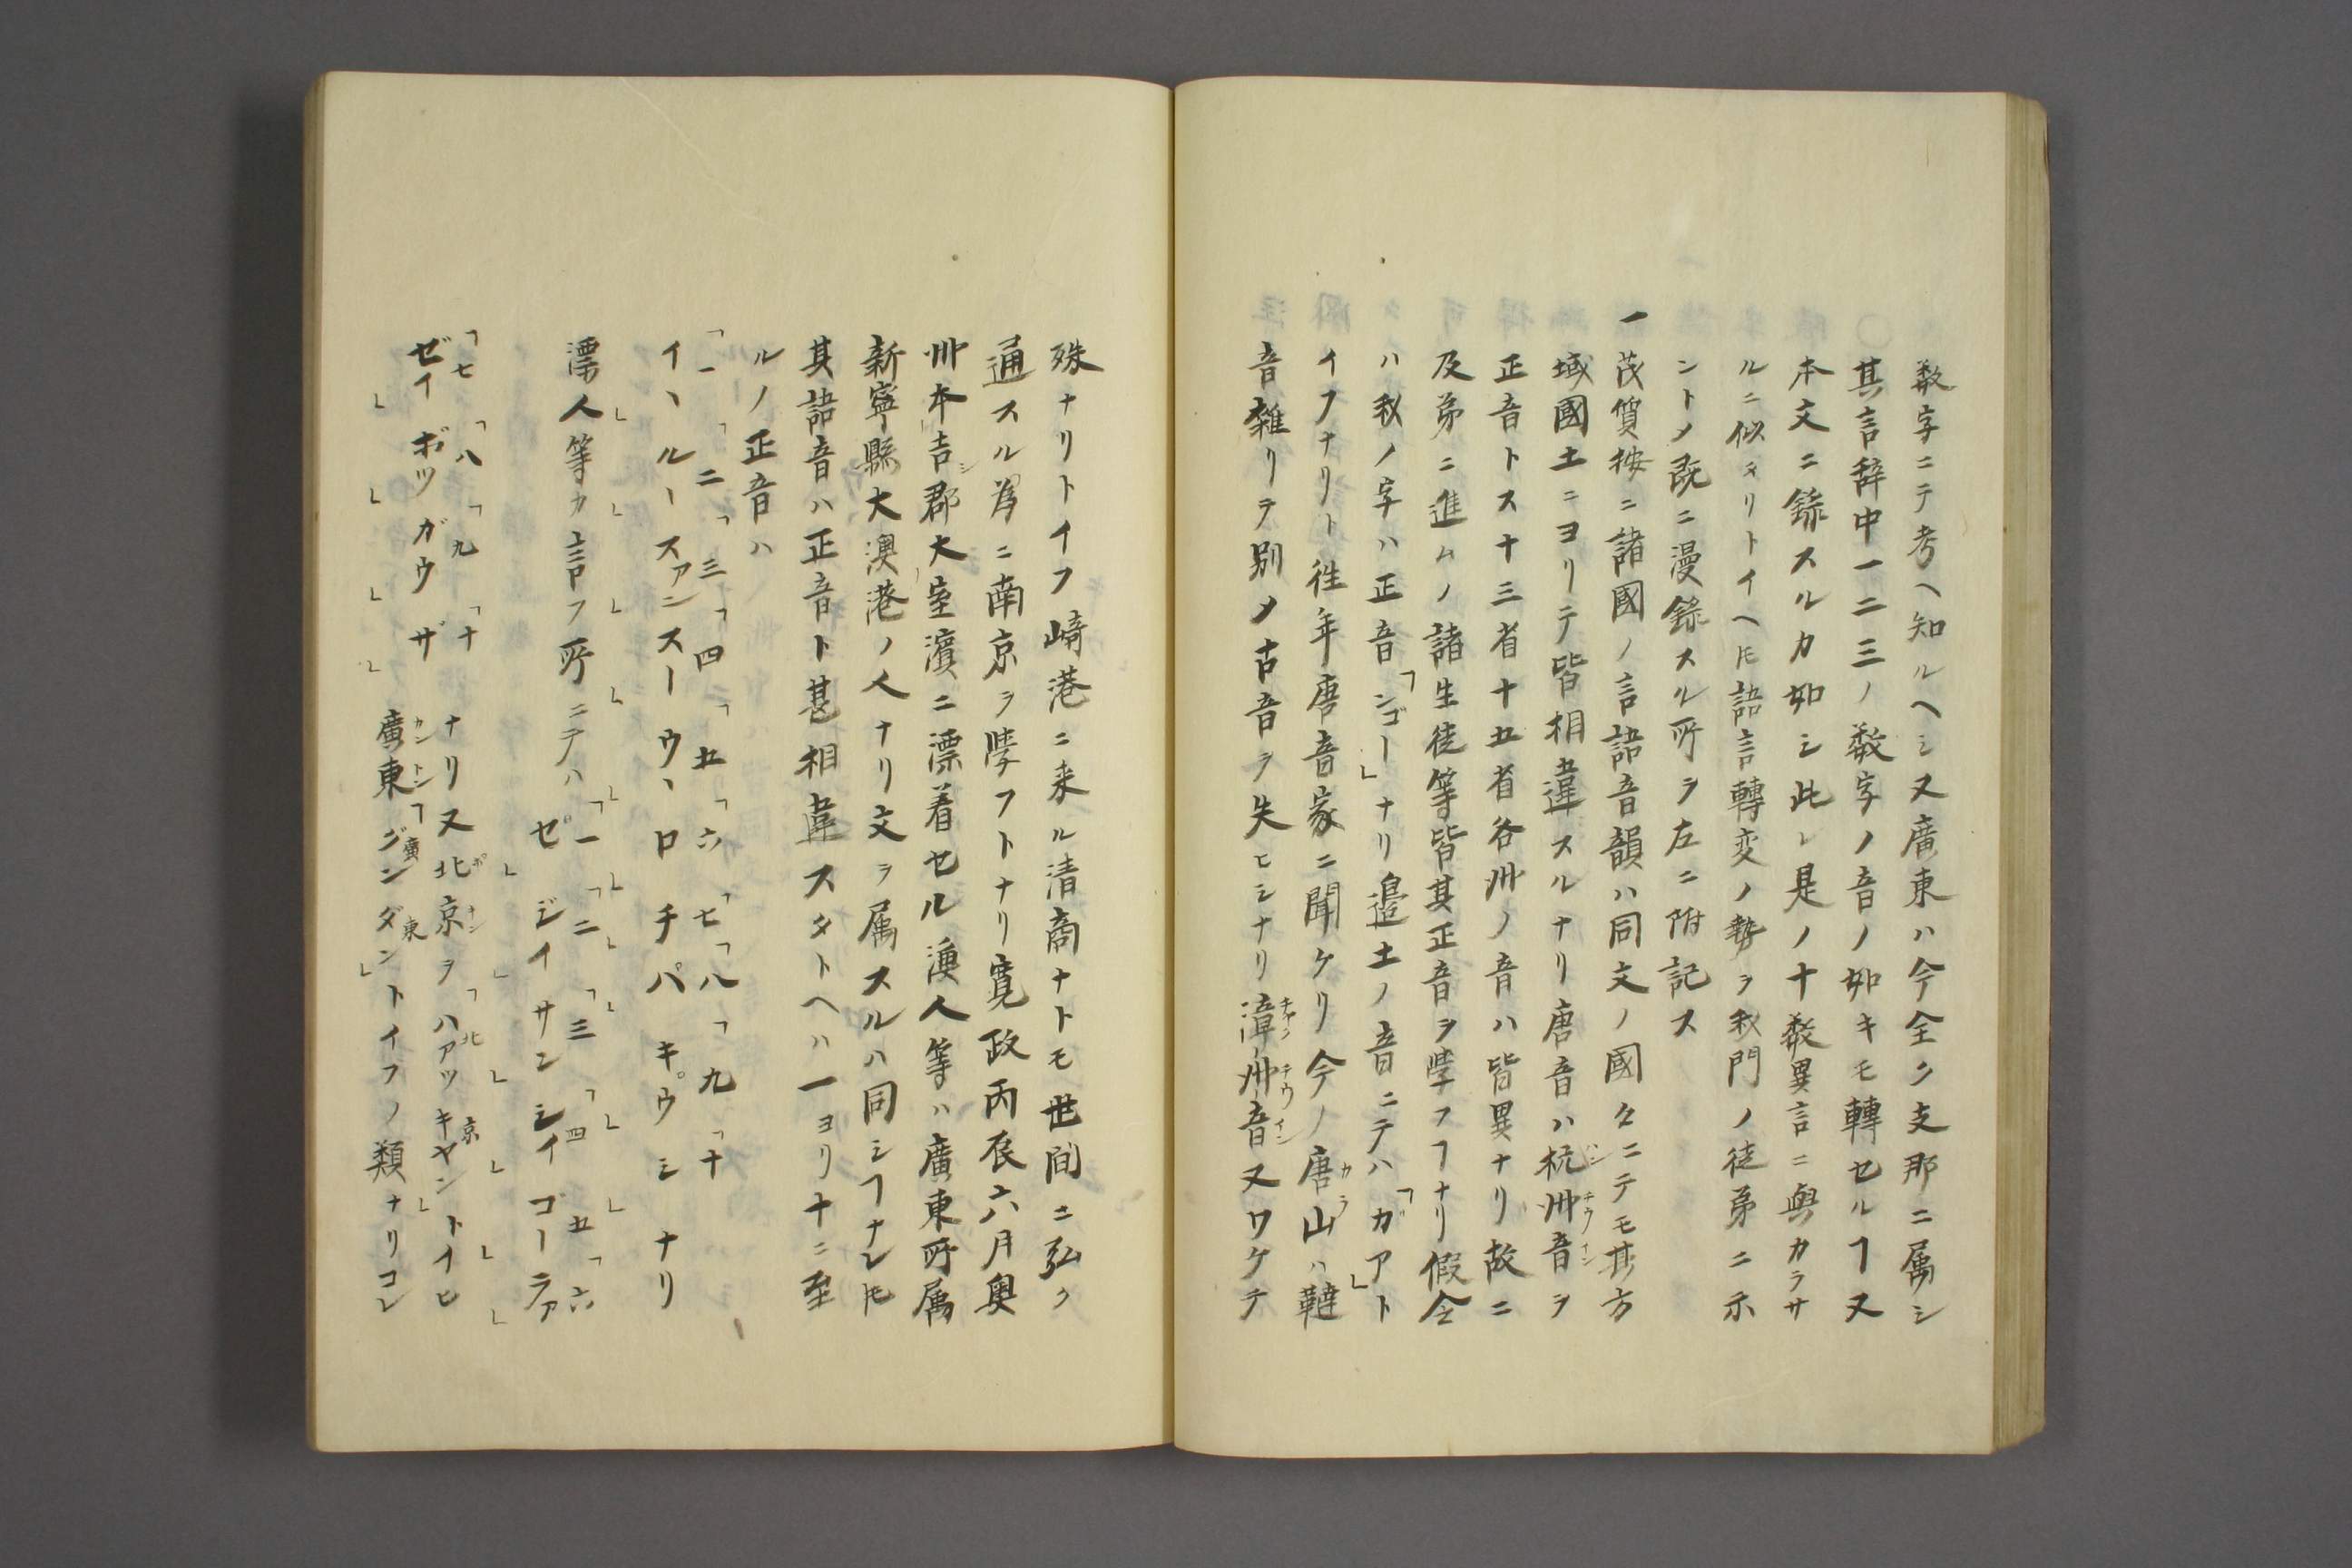 数字ニテ考ヘ知ルヘシ又廣東ハ今全ク支那ニ属シ
其言辞中一二三ノ数字ノ音ノ如キモ轉セルヿ又
本文ニ録スルカ如シ此レ是ノ十数異言ニ與カラサ
ルニ似タリトイヘ𪜈語言轉変ノ勢ヲ我門ノ徒弟ニ示
ントメ既ニ漫録スル所ヲ左ニ附記ス
一茂質按ニ諸國ノ言語音韻ハ同文ノ國々ニテモ其方
域國土ニヨリテ皆相違スルナリ唐音ハ杭州音ヲ
正音トス十三省十五省各州ノ音ハ皆異ナリ故ニ
及第ニ進ムノ諸生徒等皆其正音ヲ學フヿナリ假令
ハ我ノ字ハ正音「ンゴー」ナリ邉土ノ音ニテハ「ガアト」
イフナリト徃年唐音家ニ聞ケリ今ノ唐山ハ韃
音雜リテ別メ古音ヲ失ヒシナリ漳州音又ワケテ
殊ナリトイフ崎港ニ来ル清商ナトモ世間ニ弘ク
通スル為ニ南京ヲ學フトナリ寛政丙辰六月奥
州本吉郡大室濱ニ漂着セル漁人等ハ廣東所属
新寧縣大澳港ノ人ナリ文ヲ属スルハ同シヿナレ𪜈
其語音ハ正音ト甚相違スタトヘハ一ヨリ十ニ至
ルノ正音ハ
「一「二「三「四「五「六「七「八「九「十
イヽルースアンスーウヽロチパキ゚ウシナリ
漂人等カ言フ所ニテハ「一「二「三「四「五「六
ゼジイサンシイゴーラア
「七「八「九「十
ゼイボツガウザナリ又北京ヲ「ハアツキヤントイヒ
廣東「グンダントイフノ類ナリコレ